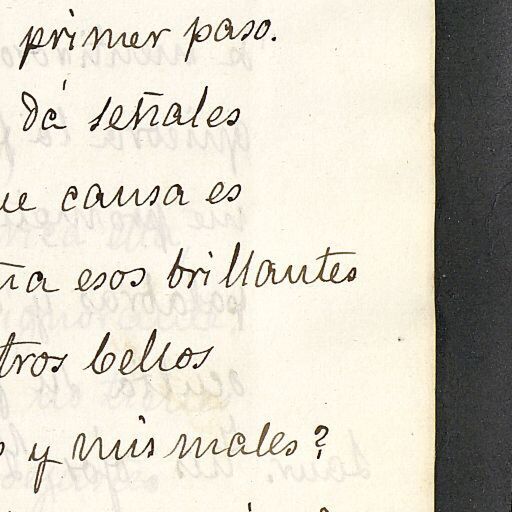 primer paso.
dá señales
ue causa es
ña esos brillantes
tros bellos
y mis males?